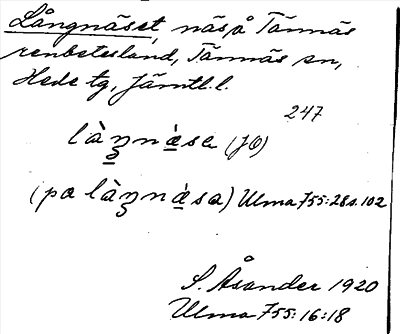 Långnäset, näs å Tännäs
renbetesland, Tännäs sn,
Hede tg, Jämtl. l.
247
làŋnä̀sa (JÖ)
(pa làŋnä̀sa) Ulma 755:28 s. 102
S. Åsander 1920
Ulma 755:16:18